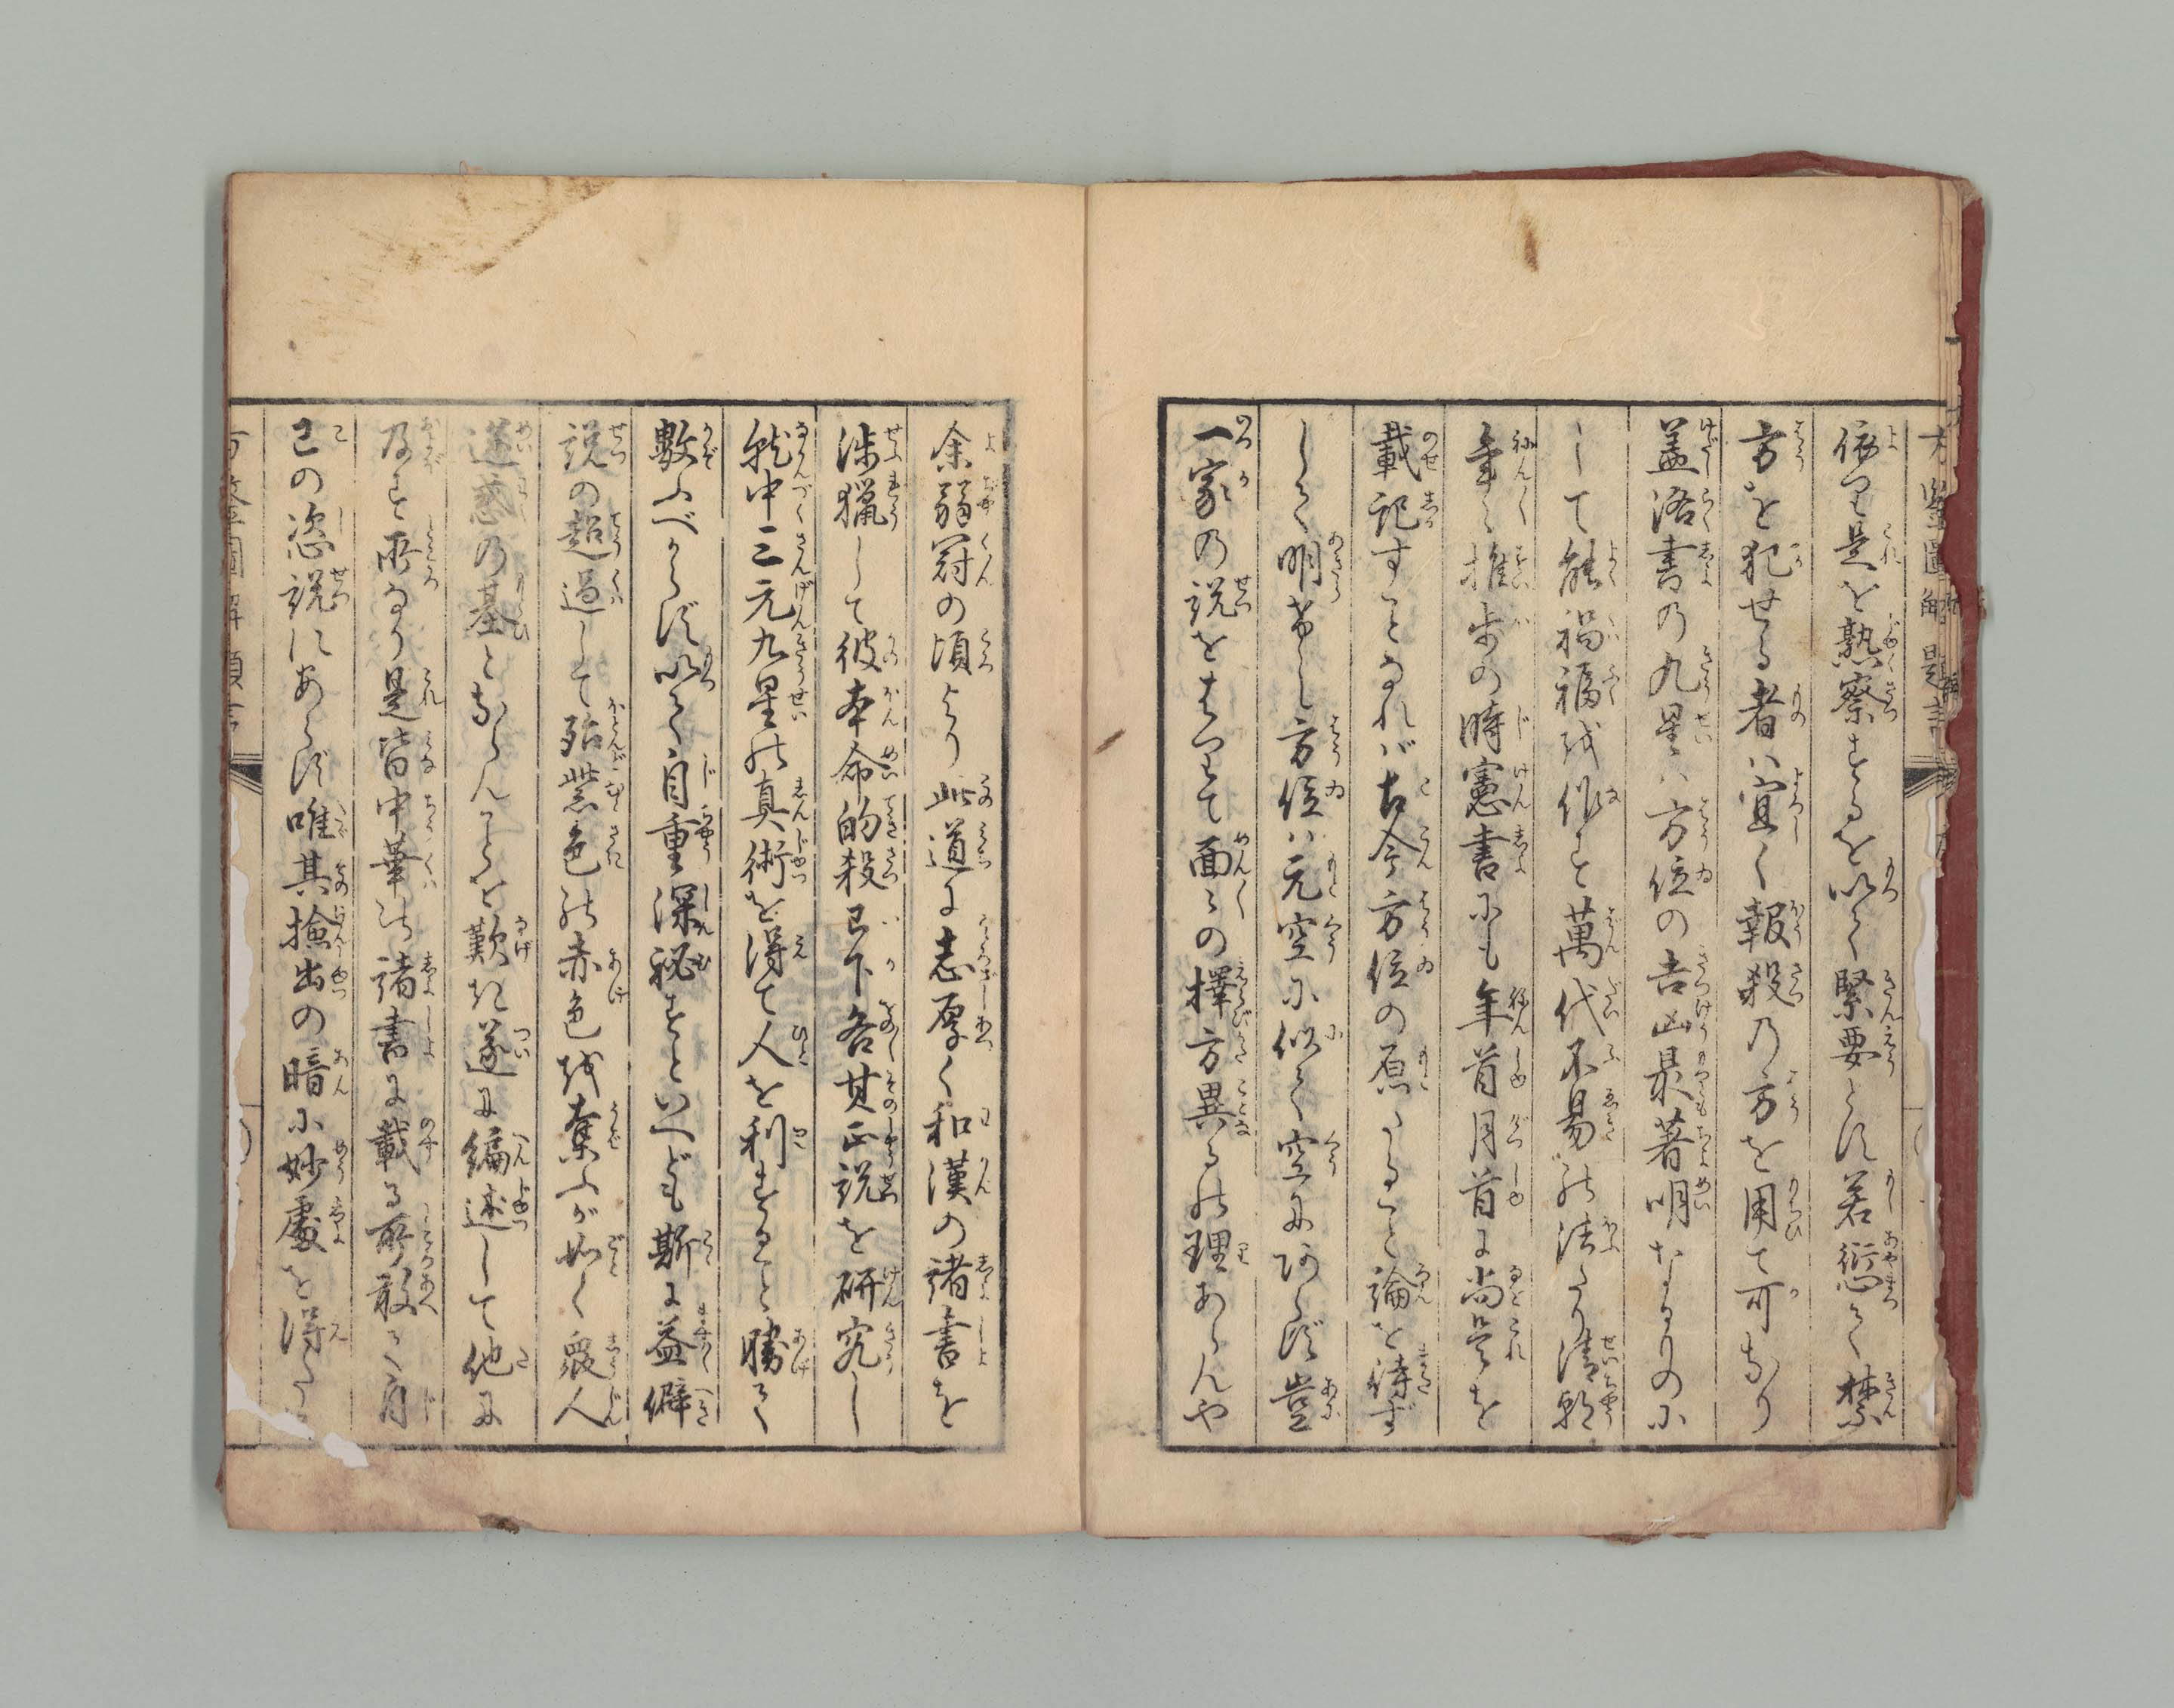 依て是を熟察するを以て緊要とす若愆て禁
方を犯せる者は宜く報殺の方を用て可なり
蓋洛書の九星は方位の吉凶最著明なるものに
して能禍福を作す萬代不易の法たり清朝
年々推歩の時憲書にも年首月首に尚是を
載記すことなれば古今方位の原たること論を待ず
しく明なし方位は元空に似て空にあらず豈
一家の説をもつて面々の擇方異るの理あらんや
余弱冠の頃より此道に志厚く和漢の諸書を
渉獵して彼本命的殺已下各其正説を研究し
就中三元九星の真術を得て人を利すること勝て
數ふべからず以て自重深秘すといへども斯に益僻
説の超過して殆紫色の赤色を奪ふが如く衆人
迷惑の基とならんことを歎き遂に編述して他に
及す所なり是皆中華の諸書に載る所敢て自
己の恣説にあらず唯其撿出の暗に妙處を得た